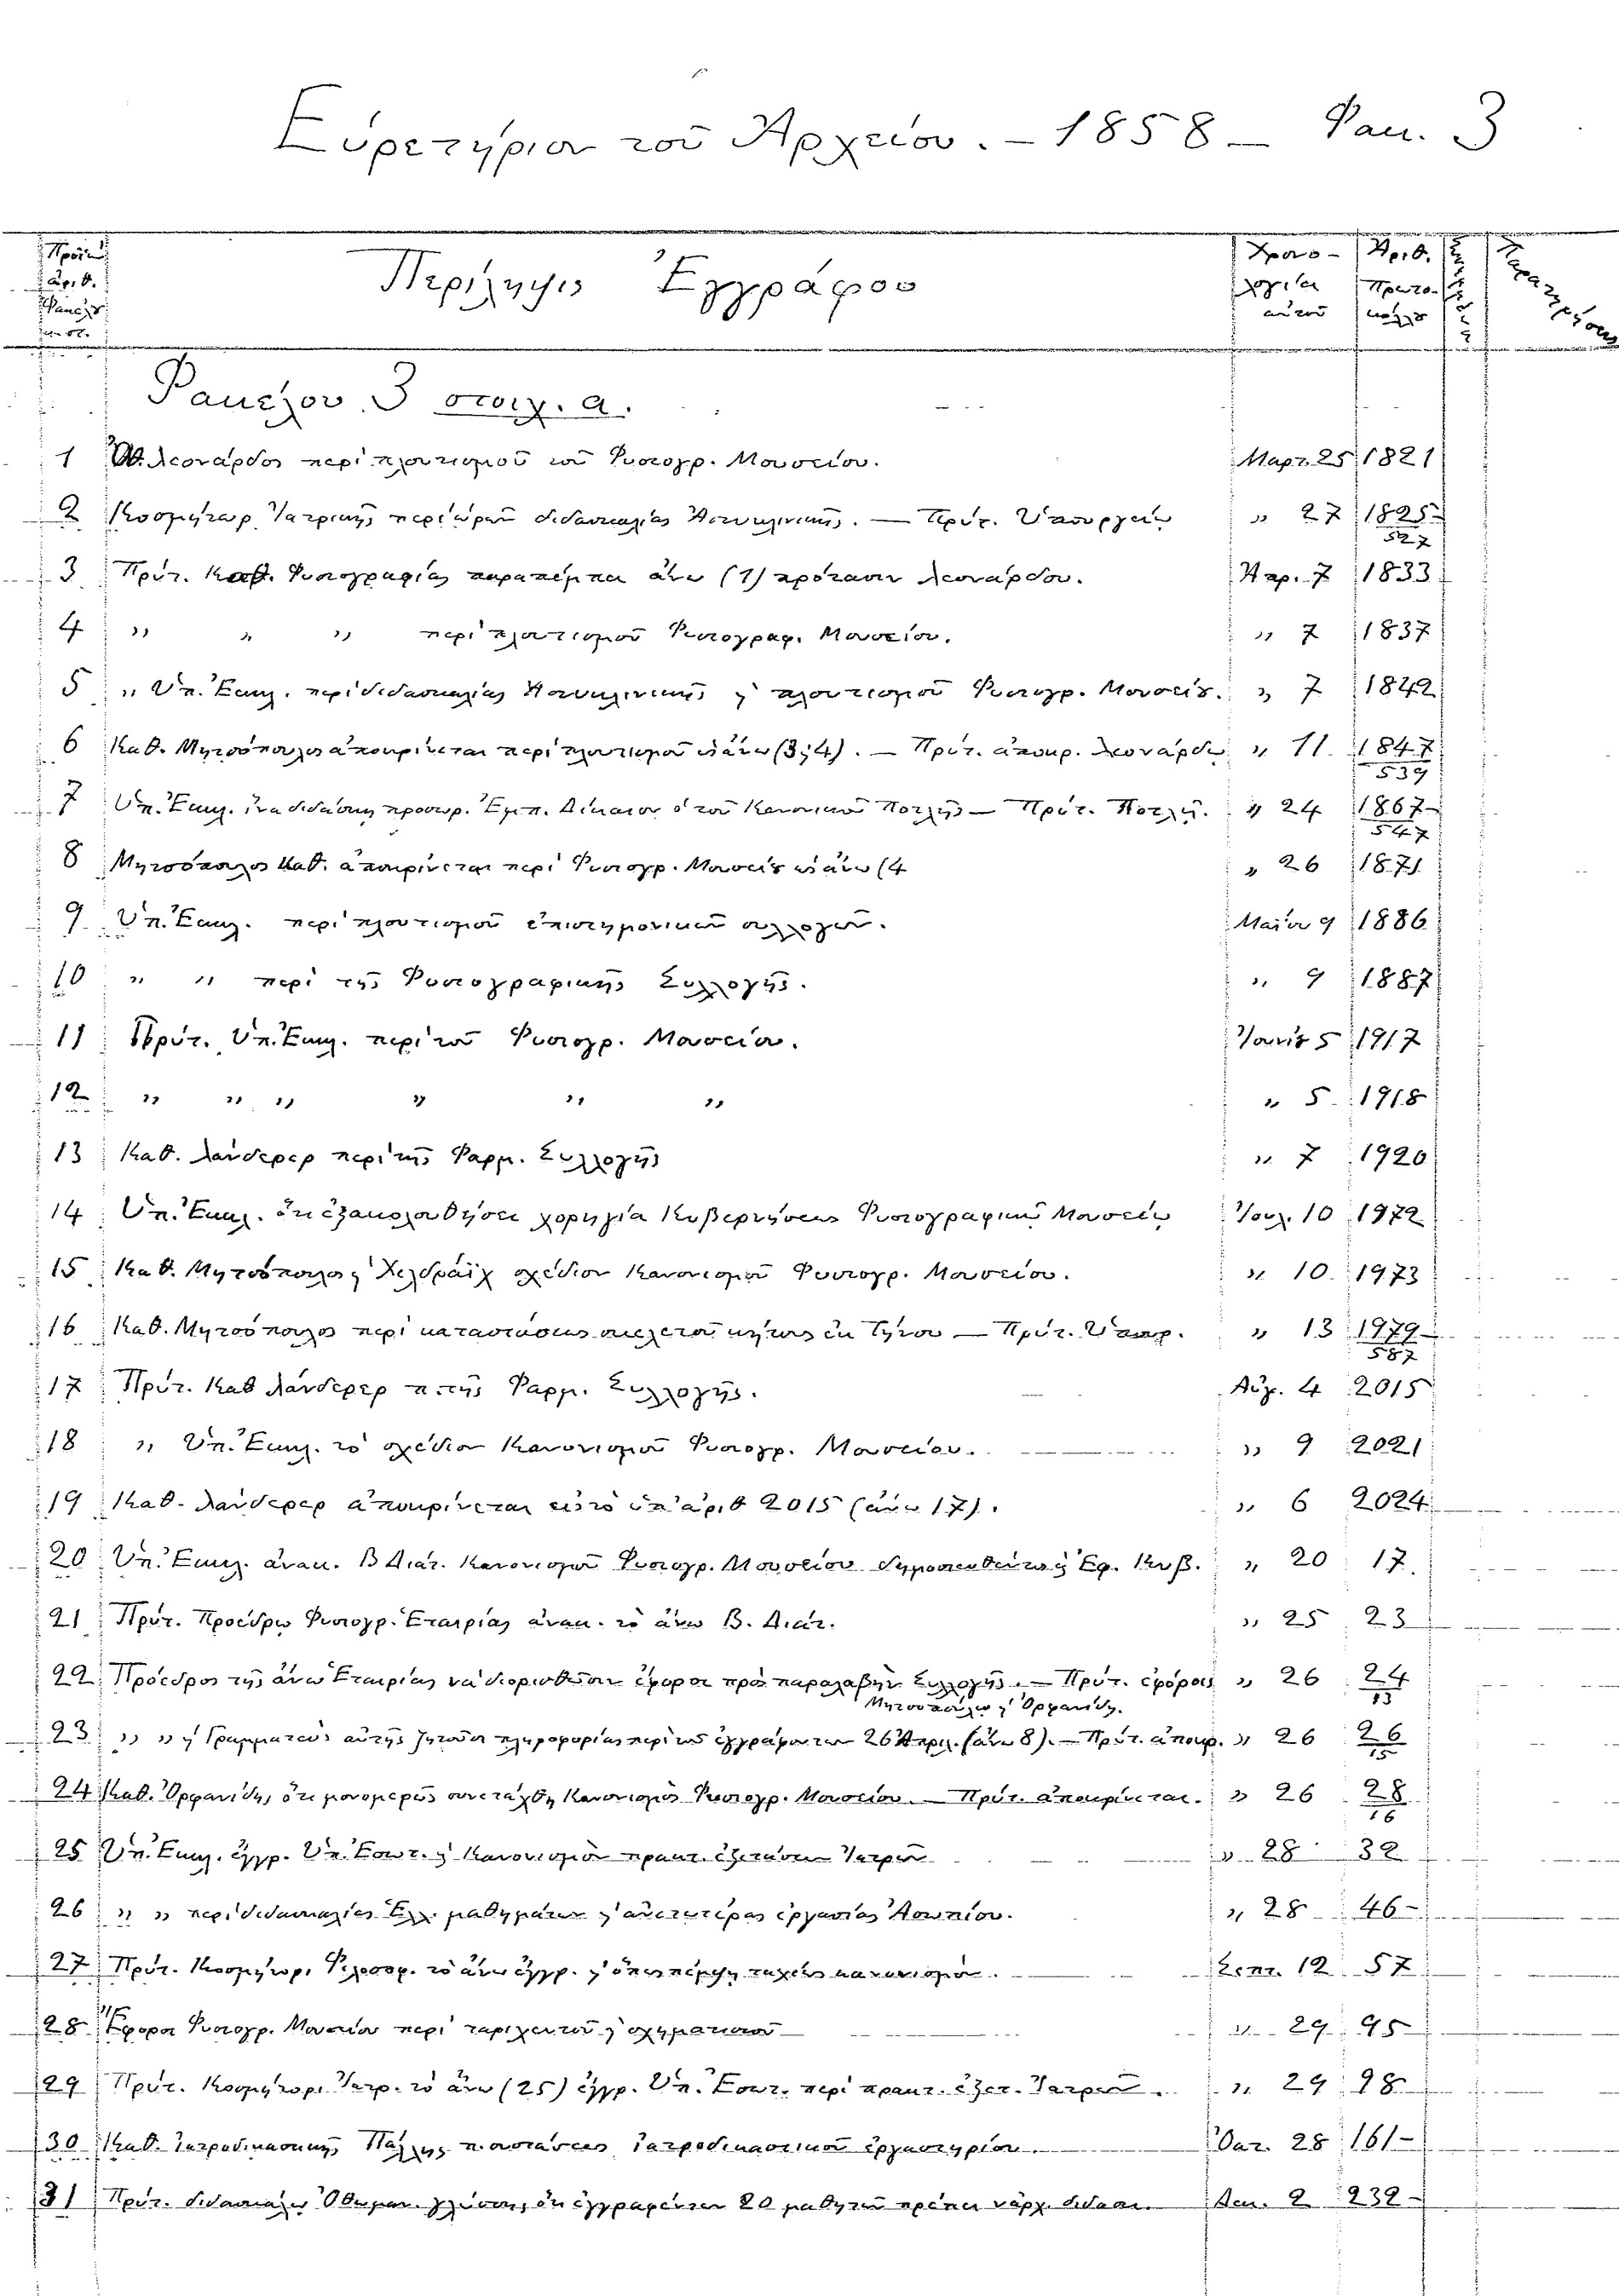 Εὑρετήριον τοῦ Ἀρχείου. – 1858 – Φακ. 3
Πρωτ. ἀριθ. Φακέλου
Περίληψις Ἐγγράφου
Χρονολογία αὐτοῦ
Ἀριθ. Πρωτοκόλλου
Παρατηρήσεις
Φακέλου 3 στοιχ. α.
1 Ἰ. Λεονάρδος περὶ πλουτισμοῦ τοῦ Φυσιογρ. Μουσείου. Μαρτ. 25 1821
2 Κοσμήτωρ Ἰατρικῆς περὶ ὡρῶν διδασκαλίας Μαιευτικῆς. — Πρύτ. Ὑπουργείῳ " 27 1825 527
3 Πρύτ. Καθ. Φυσιογραφίας παραπέμπει ἄνω (1) πρότασιν Λεονάρδου. Ἀπρ. 7 1833
4 " " " περὶ πλουτισμοῦ Φυσιογραφ. Μουσείου. " 7 1837
5 " Ὑπ. Ἐκκλ. περὶ διδασκαλίας Μαιευτικῆς ϗ πλουτισμοῦ Φυσιογρ. Μουσείου. " 7 1842
6 Καθ. Μητσόπουλος ἀποκρίνεται περὶ πλουτισμοῦ ὡς ἄνω (3, 4). — Πρύτ. ἀποκρ. Λεονάρδῳ " 11 1847 539
7 Ὑπ. Ἐκκλ. ἵνα διδάσκῃ προσωρ. Ἐμπ. Δίκαιον ὁ τοῦ Κανονικοῦ — Πρύτ. " 24 1867 547
8 Μητσόπουλος Καθ. ἀποκρίνεται περὶ Φυσιογρ. Μουσείου ὡς ἄνω (4 " 26 1871
9 Ὑπ. Ἐκκλ. περὶ πλουτισμοῦ ἐπιστημονικῶν συλλογῶν. Μαΐου 9 1886
10 " " περὶ τῆς Φυσιογραφικῆς Συλλογῆς. " 9 1887
11 Πρύτ. Ὑπ. Ἐκκλ. περὶ τοῦ Φυσιογρ. Μουσείου. Ἰουνίου 5 1917
12 " " " " " " " 5 1918
13 Καθ. Λάνδερερ περὶ τῆς Φαρμ. Συλλογῆς " 7 1920
14 Ὑπ. Ἐκκλ. ὅτι ἐξακολουθήσει χορηγία Κυβερνήσεως Φυσιογραφικῷ Μουσείῳ Ἰουλ. 10 1972
15 Καθ. Μητσόπουλος ϗ Χελδράιχ σχέδιον Κανονισμοῦ Φυσιογρ. Μουσείου. " 10 1973
16 Καθ. Μητσόπουλος περὶ καταστάσεως σκελετοῦ κήτους ἐν Τήνῳ — Πρύτ. Ὑπουρ. " 13 1979 587
17 Πρύτ. Καθ. Λάνδερερ π. τῆς Φαρμ. Συλλογῆς. Αὐγ. 4 2015
18 " Ὑπ. Ἐκκλ. τὸ σχέδιον Κανονισμοῦ Φυσιογρ. Μουσείου. " 9 2021
19 Καθ. Λάνδερερ ἀποκρίνεται εἰς τὸ ὑπ' ἀριθ 2015 (ἄνω 17). " 6 2024
20 Ὑπ. Ἐκκλ. ἀνακ. Β Διάτ. Κανονισμοῦ Φυσιογρ. Μουσείου δημοσιευθείσης Ἐφ. Κυβ. " 20 17
21 Πρύτ. Προέδρῳ Φυσιογρ. Ἑταιρίας ἀνακ. τὸ ἄνω Β. Διάτ. " 25 23
22 Πρόεδρος τῆς ἄνω Ἑταιρίας νὰ διορισθῶσιν ἔφοροι πρὸς παραλαβὴν Συλλογῆς. — Πρύτ. ἐφόροις Μητσοπούλῳ ϗ Ὀρφανίδῃ. " 26 24 13
23 " " ϗ Γραμματεὺς αὐτῆς ζητοῦσι πληροφορίας περὶ τοῦ ἐγγράφου των 26 Ἀπριλ. (ἄνω 8). — Πρύτ. ἀποκρ. " 26 26 15
24 Καθ. Ὀρφανίδης ὅτι μονομερῶς συνετάχθη Κανονισμὸς Φυσιογρ. Μουσείου. — Πρύτ. ἀποκρίνεται. " 26 28 16
25 Ὑπ. Ἐκκλ. ἔγγρ. Ὑπ. Ἐσωτ. ϗ Κανονισμὸν πρακτ. ἐξετάσεων Ἰατρῶν " 28 32
26 " " περὶ διδασκαλίας Ἑλλ. μαθημάτων ϗ ἀνωτέρας ἐργασίας " 28 46
27 Πρύτ. Κοσμήτορι Φιλοσοφ. τὸ ἄνω ἔγγρ. ϗ κανονισμόν. Σεπτ. 12 57
28 Ἔφοροι Φυσιογρ. Μουσείου περὶ ταριχευτοῦ " 29 95
29 Πρύτ. Κοσμήτορι Ἰατρ. τὸ ἄνω (25) ἔγγρ. Ὑπ. Ἐσωτ. περὶ πρακτ. ἐξετ. Ἰατρῶν. " 29 98
30 Καθ. Ἰατροδικαστικῆς π. συστάσεως Ἰατροδικαστικοῦ ἐργαστηρίου. Ὀκτ. 28 161
31 Πρύτ. Ὀθωμαν. γλώσσης ὅτι ἐγγραφέντων 20 μαθητῶν πρέπει Δεκ. 2 232